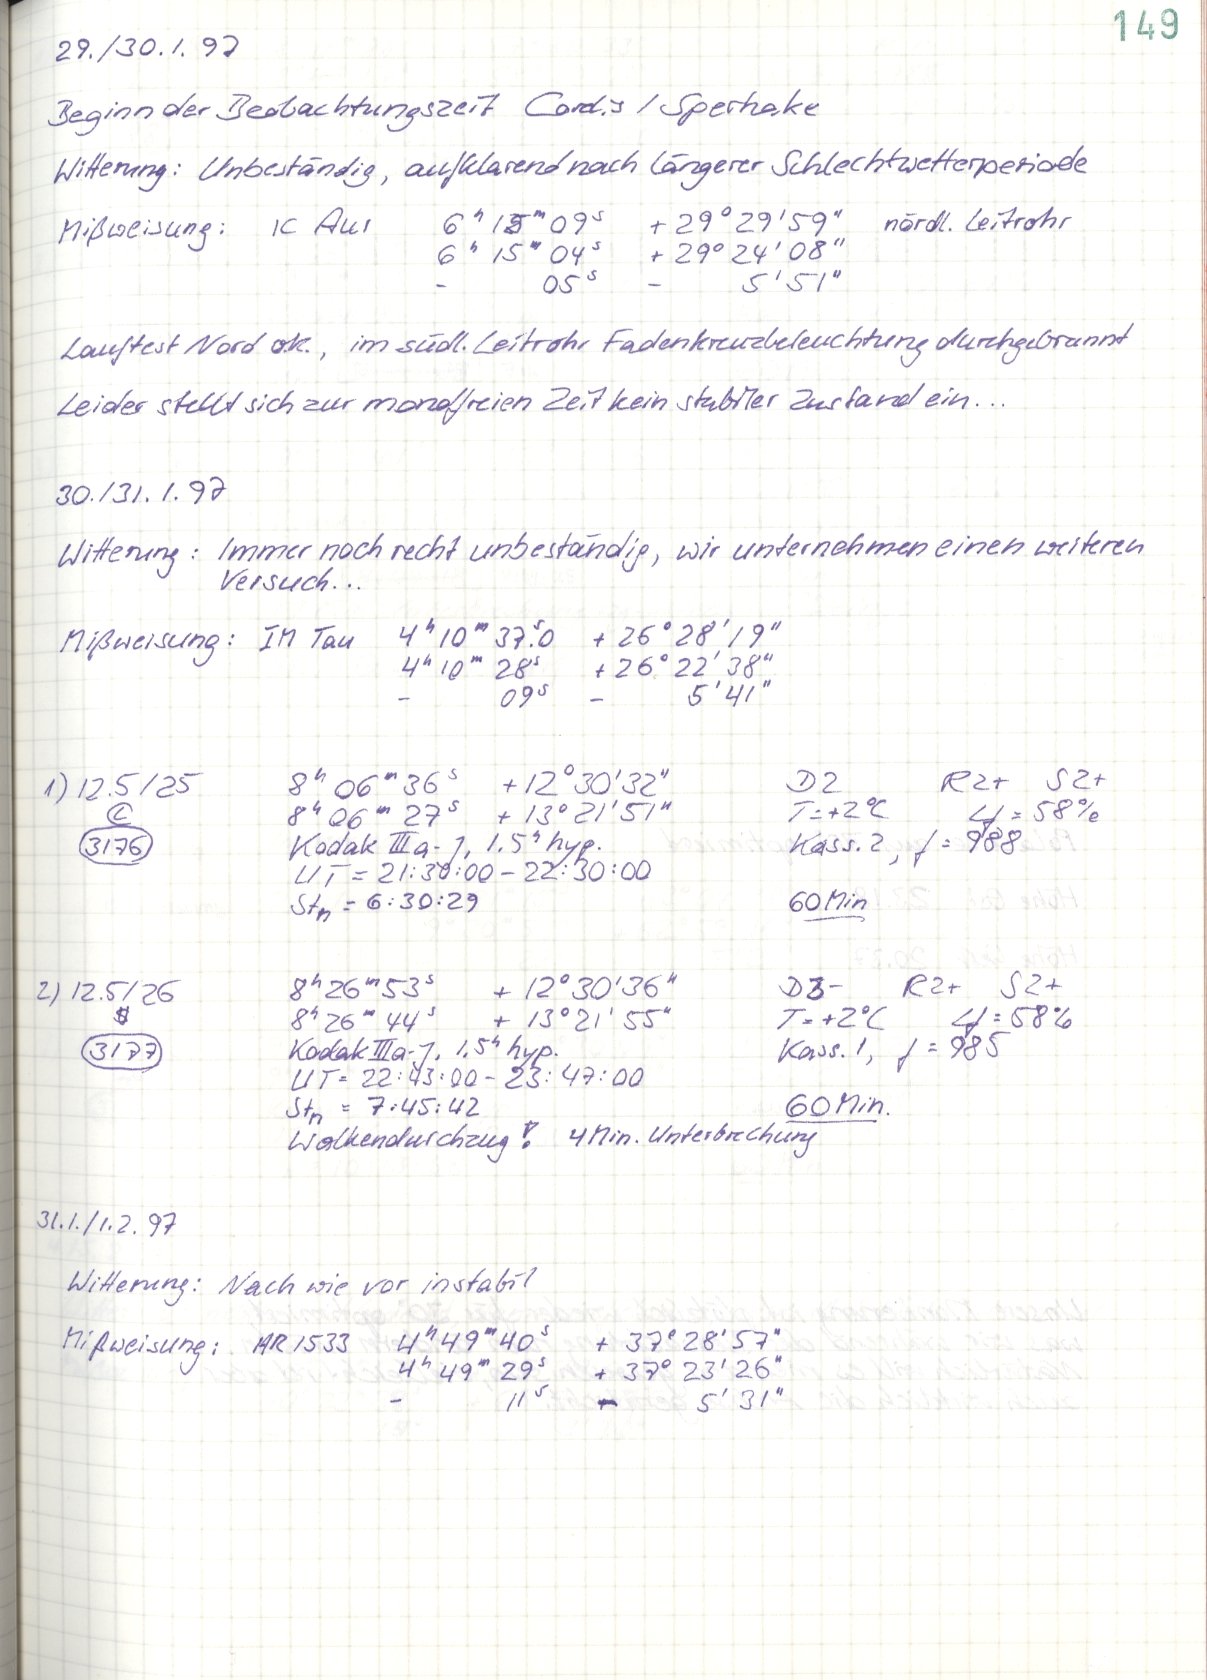 149
29./30.1.97
Beginn der Beobachtungszeit Cordis / Sperhake
Witterung: Unbeständig, aufklarend nach längerer Schlechtwetterperiode
Mißweisung: IC Aur 6ʰ 15ᵐ 09ˢ +29° 29' 59" nördl. Leitrohr
6ʰ 15ᵐ 04ˢ +29° 24' 08"
- 05ˢ - 5' 51"
Lauftest Nord ok., im südl. Leitrohr Fadenkreuzbeleuchtung durchgebrannt
Leider stellt sich zur mondfreien Zeit kein stabiler Zustand ein...
30./31.1.97
Witterung: Immer noch recht unbeständig, wir unternehmen einen weiteren
Versuch...
Mißweisung: IM Tau 4ʰ 10ᵐ 37ˢ.0 +26° 28' 19"
4ʰ 10ᵐ 28ˢ +26° 22' 38"
- 09ˢ - 5' 41"
1) 12.5/25 8ʰ 06ᵐ 36ˢ +12° 30' 32" D2 R2+ S2+
C 8ʰ 06ᵐ 27ˢ +13° 21' 51" T=+2°C φ=58%
3176 Kodak IIIa-J, 1.5ʰ hyp. Kass. 2, f=988
UT = 21:30:00 - 22:30:00
Stₙ = 6:30:29 60 Min
2) 12.5/26 8ʰ 26ᵐ 53ˢ +12° 30' 36" D3- R2+ S2+
8ʰ 26ᵐ 44ˢ +13° 21' 55" T=+2°C φ=58%
3177 Kodak IIIa-J, 1.5ʰ hyp. Kass. 1, f=985
UT = 22:43:00 - 23:47:00
Stₙ = 7:45:42 60 Min.
Wolkendurchzug! 4 Min. Unterbrechung
31.1./1.2.97
Witterung: Nach wie vor instabil
Mißweisung: AR 1533 4ʰ 49ᵐ 40ˢ +37° 28' 57"
4ʰ 49ᵐ 29ˢ +37° 23' 26"
- 11ˢ - 5' 31"